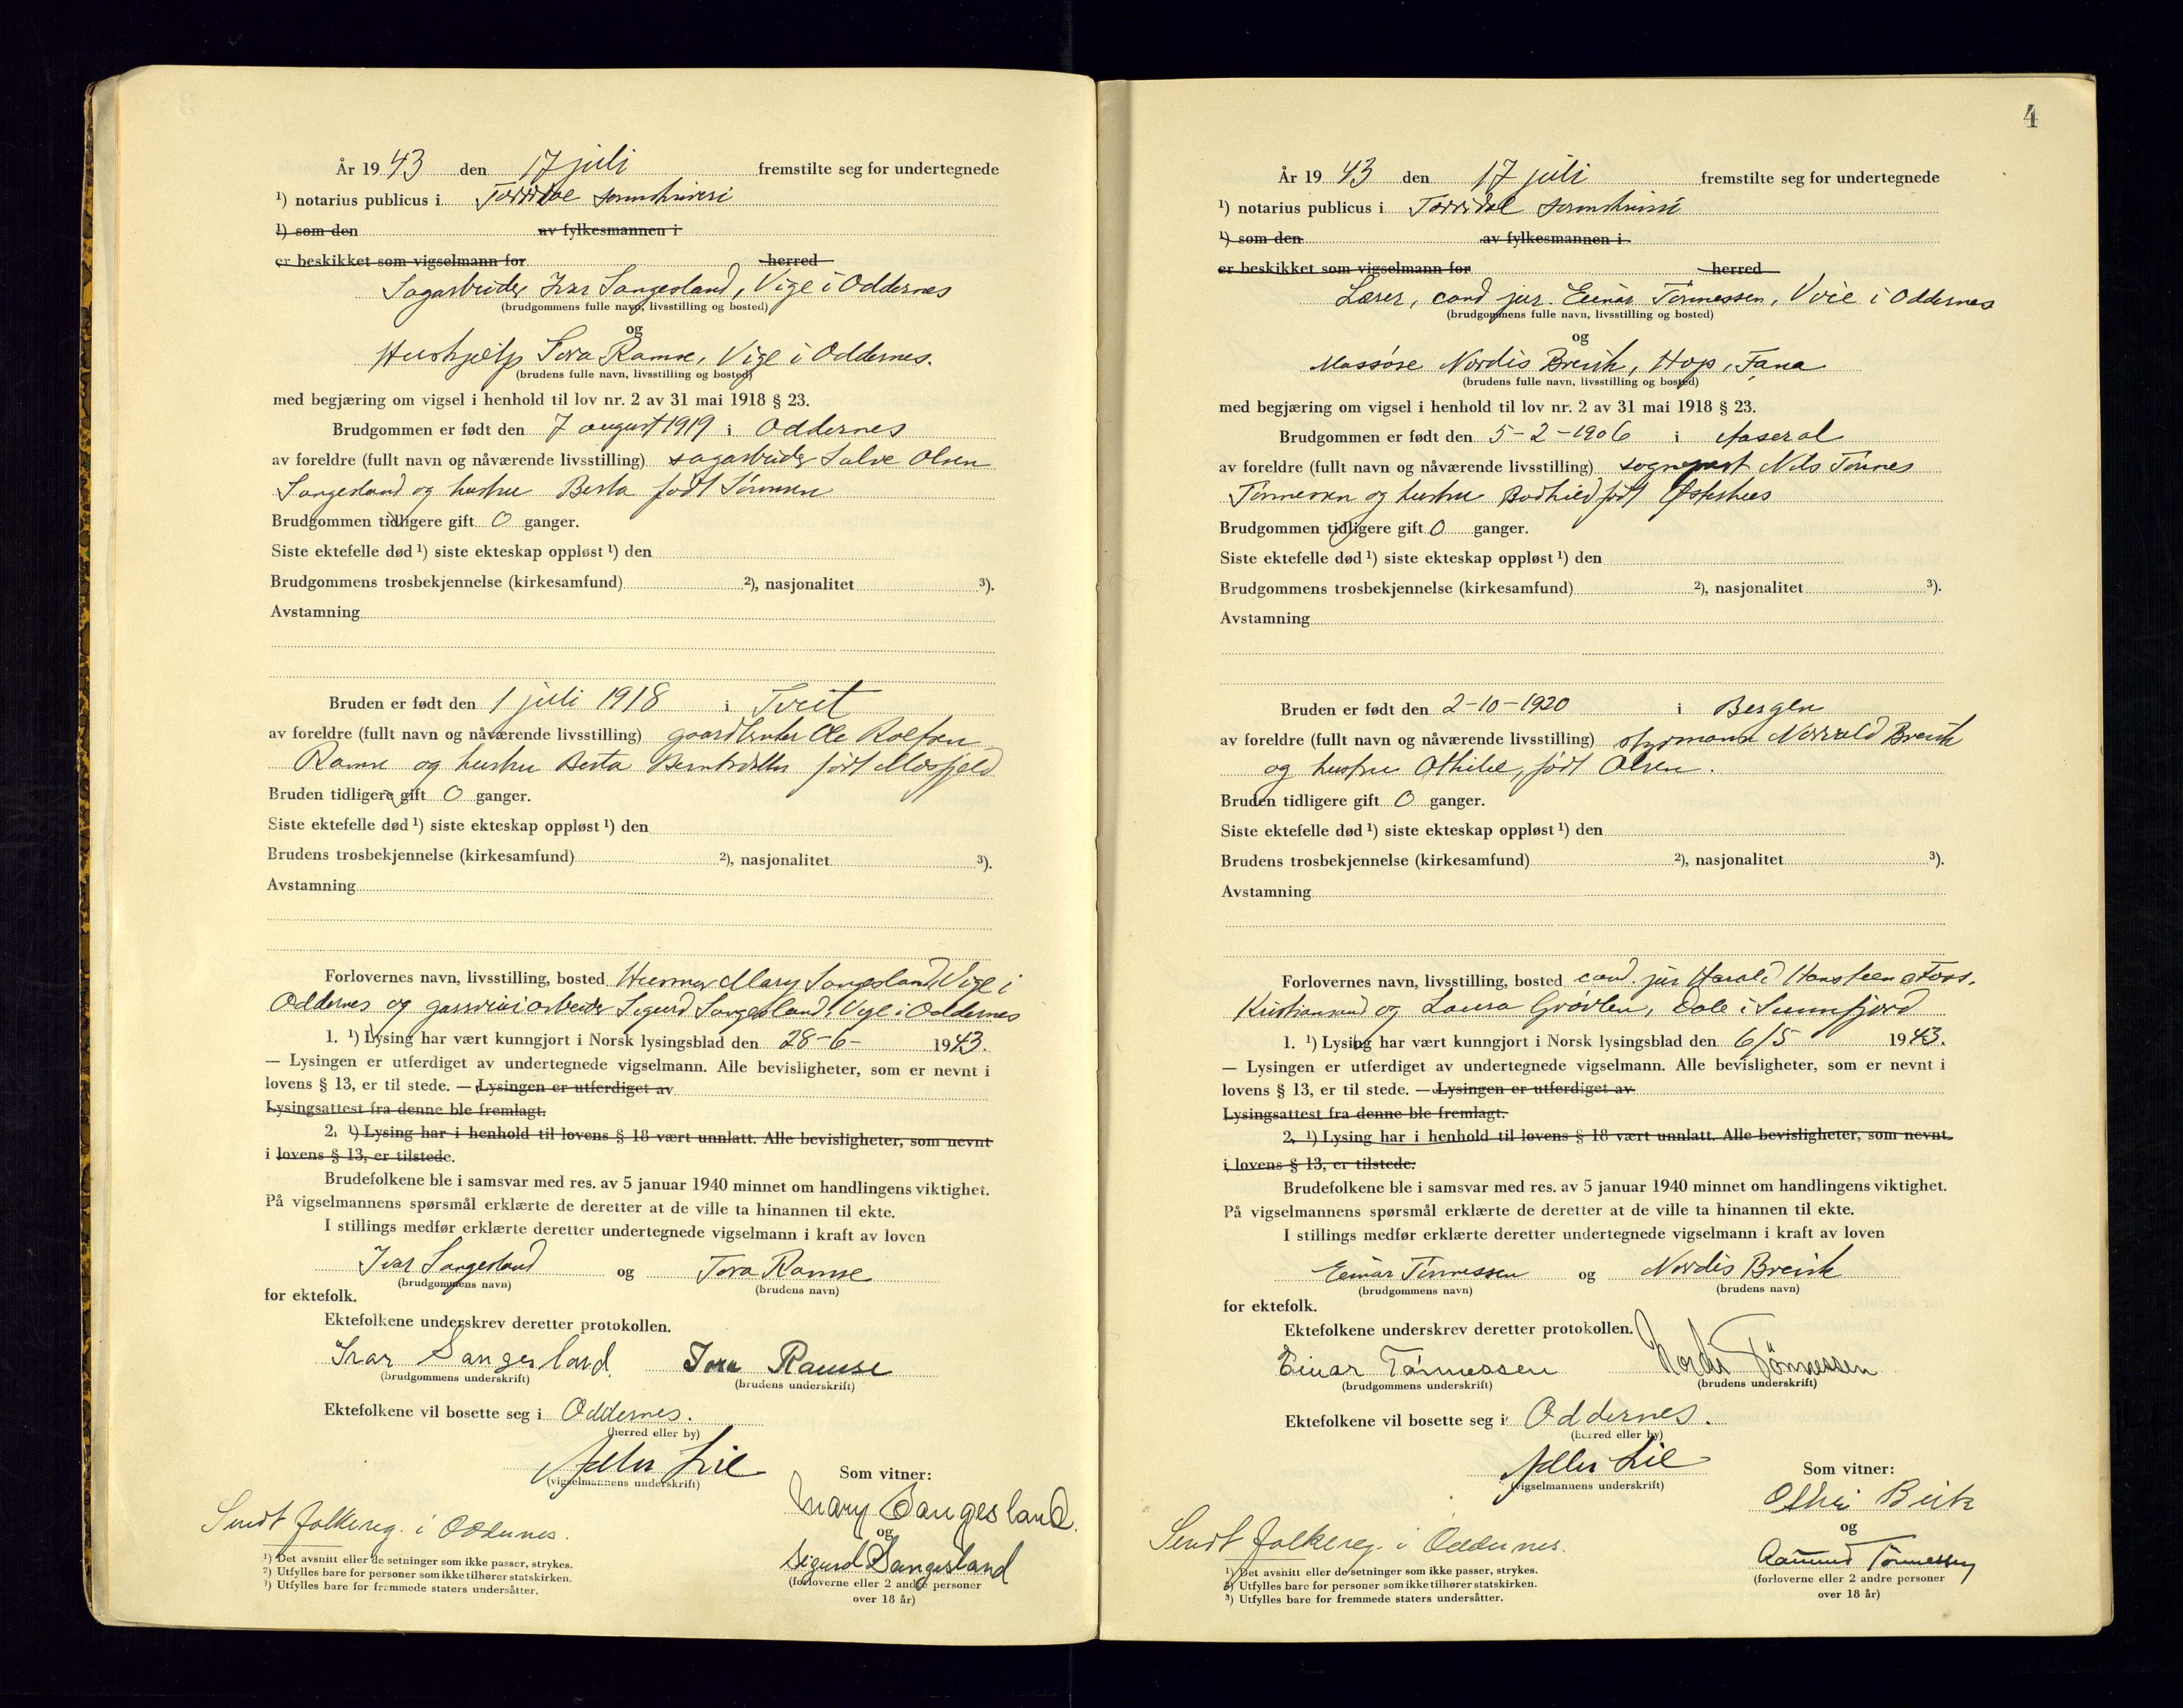 År 19 43 den 17 juli fremstilte seg for undertegnede
¹) notarius publicus i Torridal sorenskriveri
¹) som den av fylkesmannen i
er beskikket som vigselmann for herred
Sagarbeider Ivar Sangesland, Vige i Oddernes
(brudgommens fulle navn, livsstilling og bosted)
og
Hushjelp Tora Ramse, Vige i Oddernes.
(brudens fulle navn, livsstilling og bosted)
med begjæring om vigsel i henhold til lov nr. 2 av 31 mai 1918 § 23.
Brudgommen er født den 7 august 1919 i Oddernes
av foreldre (fullt navn og nåværende livsstilling) sagarbeider Salve Olsen
Sangesland og hustru Berta født
Brudgommen tidligere gift 0 ganger.
Siste ektefelle død ¹) siste ekteskap oppløst ¹) den
Brudgommens trosbekjennelse (kirkesamfund) ²), nasjonalitet ³).
Avstamning
Bruden er født den 1 juli 1918 i Tveit
av foreldre (fullt navn og nåværende livsstilling) gaardbruker Ole Rolfsen
Ramse og hustru Berta født Mosfjeld
Bruden tidligere gift 0 ganger.
Siste ektefelle død ¹) siste ekteskap oppløst ¹) den
Brudens trosbekjennelse (kirkesamfund) ²), nasjonalitet ³).
Avstamning
Forlovernes navn, livsstilling, bosted Husmor Mary Sangesland, Vige i
Oddernes og arbeider Sigurd Sangesland, Vige i Oddernes
1. ¹) Lysing har vært kunngjort i Norsk lysingsblad den 28-6- 1943.
— Lysingen er utferdiget av undertegnede vigselmann. Alle bevisligheter, som er nevnt i
lovens § 13, er til stede. — Lysingen er utferdiget av
Lysingsattest fra denne ble fremlagt.
2. ¹) Lysing har i henhold til lovens § 18 vært unnlatt. Alle bevisligheter, som nevnt
i lovens § 13, er tilstede.
Brudefolkene ble i samsvar med res. av 5 januar 1940 minnet om handlingens viktighet.
På vigselmannens spørsmål erklærte de deretter at de ville ta hinannen til ekte.
I stillings medfør erklærte deretter undertegnede vigselmann i kraft av loven
Ivar Sangesland og Tora Ramse
(brudgommens navn) (brudens navn)
for ektefolk.
Ektefolkene underskrev deretter protokollen.
Ivar Sangesland. Tora Ramse
(brudgommens underskrift) (brudens underskrift)
Ektefolkene vil bosette seg i Oddernes.
(herred eller by)
Adler Lie
(vigselmannens underskrift)
Som vitner:
Mary Sangesland.
og
Sigurd Sangesland
(forloverne eller 2 andre personer
over 18 år)
Sendt folkereg. i Oddernes.
¹) Det avsnitt eller de setninger som ikke passer, strykes.
²) Utfylles bare for personer som ikke tilhører statskirken.
³) Utfylles bare for fremmede staters undersåtter.
4
År 19 43 den 17 juli fremstilte seg for undertegnede
¹) notarius publicus i Torridal sorenskriveri
¹) som den av fylkesmannen i
er beskikket som vigselmann for herred
Lærer, cand jur. Einar Tönnessen, Voie i Oddernes
(brudgommens fulle navn, livsstilling og bosted)
og
Massöse Nordis Breivik, Hop, Fana
(brudens fulle navn, livsstilling og bosted)
med begjæring om vigsel i henhold til lov nr. 2 av 31 mai 1918 § 23.
Brudgommen er født den 5-2-1906 i Aaseral
av foreldre (fullt navn og nåværende livsstilling) sogneprest Nils Tönnes
Tönnessen og hustru Bodhild født
Brudgommen tidligere gift 0 ganger.
Siste ektefelle død ¹) siste ekteskap oppløst ¹) den
Brudgommens trosbekjennelse (kirkesamfund) ²), nasjonalitet ³).
Avstamning
Bruden er født den 2-10-1920 i Bergen
av foreldre (fullt navn og nåværende livsstilling) styrmann Norvald Breivik
og hustru Othilie, født Olsen.
Bruden tidligere gift 0 ganger.
Siste ektefelle død ¹) siste ekteskap oppløst ¹) den
Brudens trosbekjennelse (kirkesamfund) ²), nasjonalitet ³).
Avstamning
Forlovernes navn, livsstilling, bosted cand. jur Harald Hansteen Foss,
Kristiansand og Laura Grövlen, Dale i Sunnfjord
1. ¹) Lysing har vært kunngjort i Norsk lysingsblad den 6/5 1943.
— Lysingen er utferdiget av undertegnede vigselmann. Alle bevisligheter, som er nevnt i
lovens § 13, er til stede. — Lysingen er utferdiget av
Lysingsattest fra denne ble fremlagt.
2. ¹) Lysing har i henhold til lovens § 18 vært unnlatt. Alle bevisligheter, som nevnt
i lovens § 13, er tilstede.
Brudefolkene ble i samsvar med res. av 5 januar 1940 minnet om handlingens viktighet.
På vigselmannens spørsmål erklærte de deretter at de ville ta hinannen til ekte.
I stillings medfør erklærte deretter undertegnede vigselmann i kraft av loven
Einar Tönnessen og Nordis Breivik
(brudgommens navn) (brudens navn)
for ektefolk.
Ektefolkene underskrev deretter protokollen.
Einar Tönnessen Nordis Tönnessen
(brudgommens underskrift) (brudens underskrift)
Ektefolkene vil bosette seg i Oddernes.
(herred eller by)
Adler Lie
(vigselmannens underskrift)
Som vitner:
og
Aamund Tönnessen
(forloverne eller 2 andre personer
over 18 år)
Sendt folkereg. i Oddernes.
¹) Det avsnitt eller de setninger som ikke passer, strykes.
²) Utfylles bare for personer som ikke tilhører statskirken.
³) Utfylles bare for fremmede staters undersåtter.